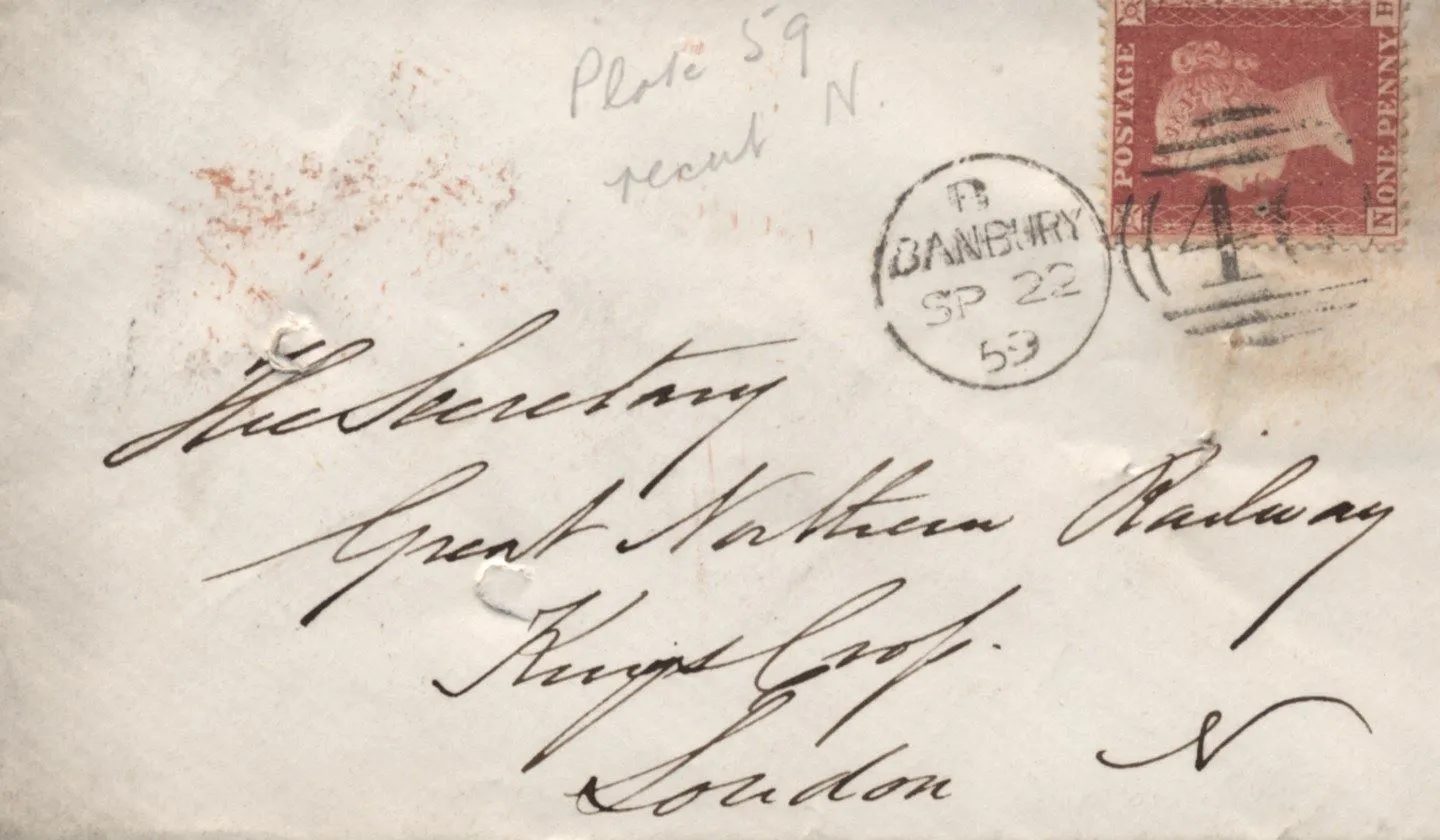 Plate 59
recut N.
POSTAGE
ONE PENNY
N
H
B
BANBURY
SP 22
59
4
The Secretary
Great Northern Railway
Kings Croſs.
London N